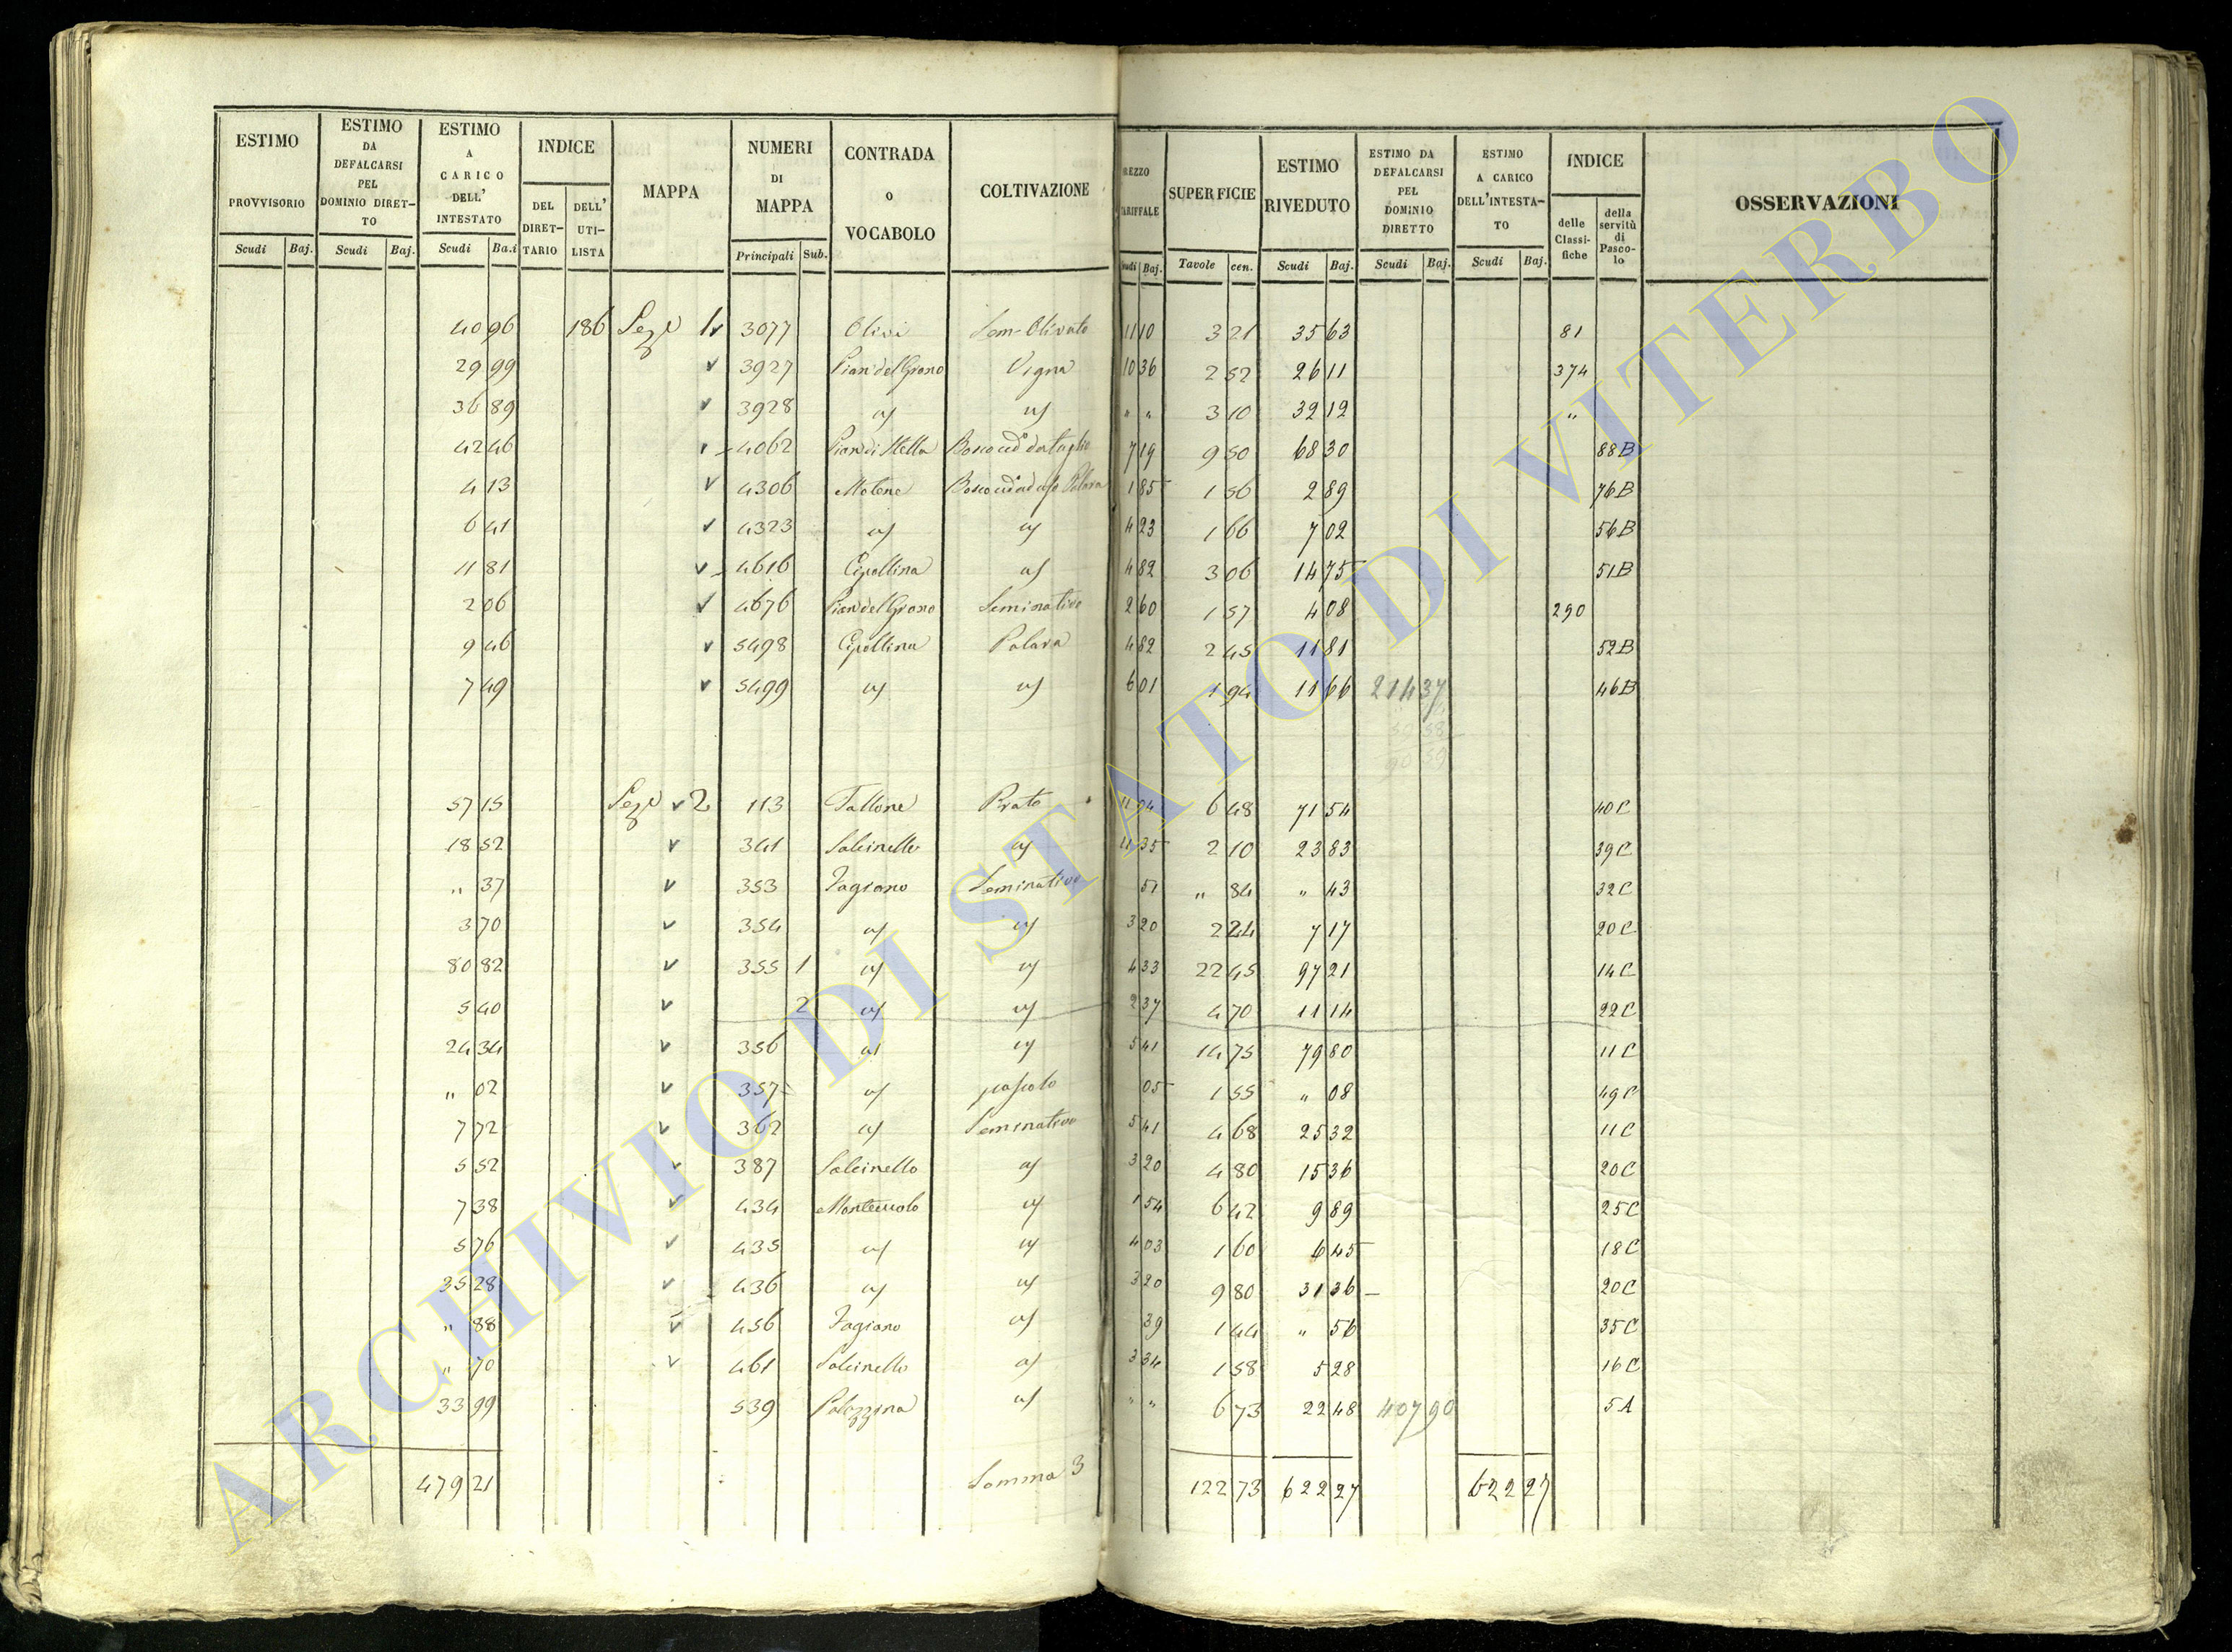 ESTIMO PROVVISORIO Scudi Baj.
ESTIMO DA DEFALCARSI PEL DOMINIO DIRET-TO Scudi Baj.
ESTIMO A CARICO DELL' INTESTATO Scudi Ba.i
INDICE DEL DIRET-TARIO DELL' UTI-LISTA
MAPPA
NUMERI DI MAPPA Principali Sub.
CONTRADA o VOCABOLO
COLTIVAZIONE
REZZO TARIFFALE Baj.
SUPERFICIE Tavole cen.
ESTIMO RIVEDUTO Scudi Baj.
ESTIMO DA DEFALCARSI PEL DOMINIO DIRETTO Scudi Baj.
ESTIMO A CARICO DELL'INTESTA-TO Scudi Baj.
INDICE delle Classi-fiche della servitù di Pasco-lo
OSSERVAZIONI
40 96 186 1 3077 Olivi Sem-Olivato 11 10 3 21 35 63 81
29 99 3927 Pian del Grano Vigna 10 36 2 52 26 11 374
36 89 3928 " " 3 10 32 12 "
42 46 4062 Pian di Stella 7 19 9 50 68 30 88B
4 13 4306 1 85 1 56 2 89 76B
6 41 4323 4 23 1 66 7 02 56B
11 81 4616 Cipollina 4 82 3 06 14 75 51B
2 06 4676 Pian del Grano Seminativo 2 60 1 57 4 08 290
9 46 5498 Cipollina 4 82 2 45 11 81 52B
7 49 5499 6 01 1 94 11 66 214 37 46B
57 15 2 113 Fallone Prato 11 04 6 48 71 54 40C
18 52 341 Salcinello 11 35 2 10 23 83 39C
" 37 353 Fagiano Seminativo 51 " 84 " 43 32C
3 70 354 3 20 2 24 7 17 20C
80 82 355 1 4 33 22 45 97 21 14C
5 40 2 2 37 4 70 11 14 22C
24 34 356 5 41 14 75 79 80 11C
" 02 357 pascolo 05 1 55 " 08 49C
7 72 362 Seminativo 5 41 4 68 25 32 11C
5 52 387 Salcinello 3 20 4 80 15 36 20C
7 38 434 1 54 6 42 9 89 25C
5 76 435 4 03 1 60 6 45 18C
35 28 436 3 20 9 80 31 36 20C
" 88 456 Fagiano 39 1 44 " 56 35C
" 70 461 Salcinello 3 34 1 58 5 28 16C
33 99 539 Palazzina " " 6 73 22 48 407 90 5A
479 21 Somma 3 122 73 622 27 622 27
ARCHIVIO DI STATO DI VITERBO